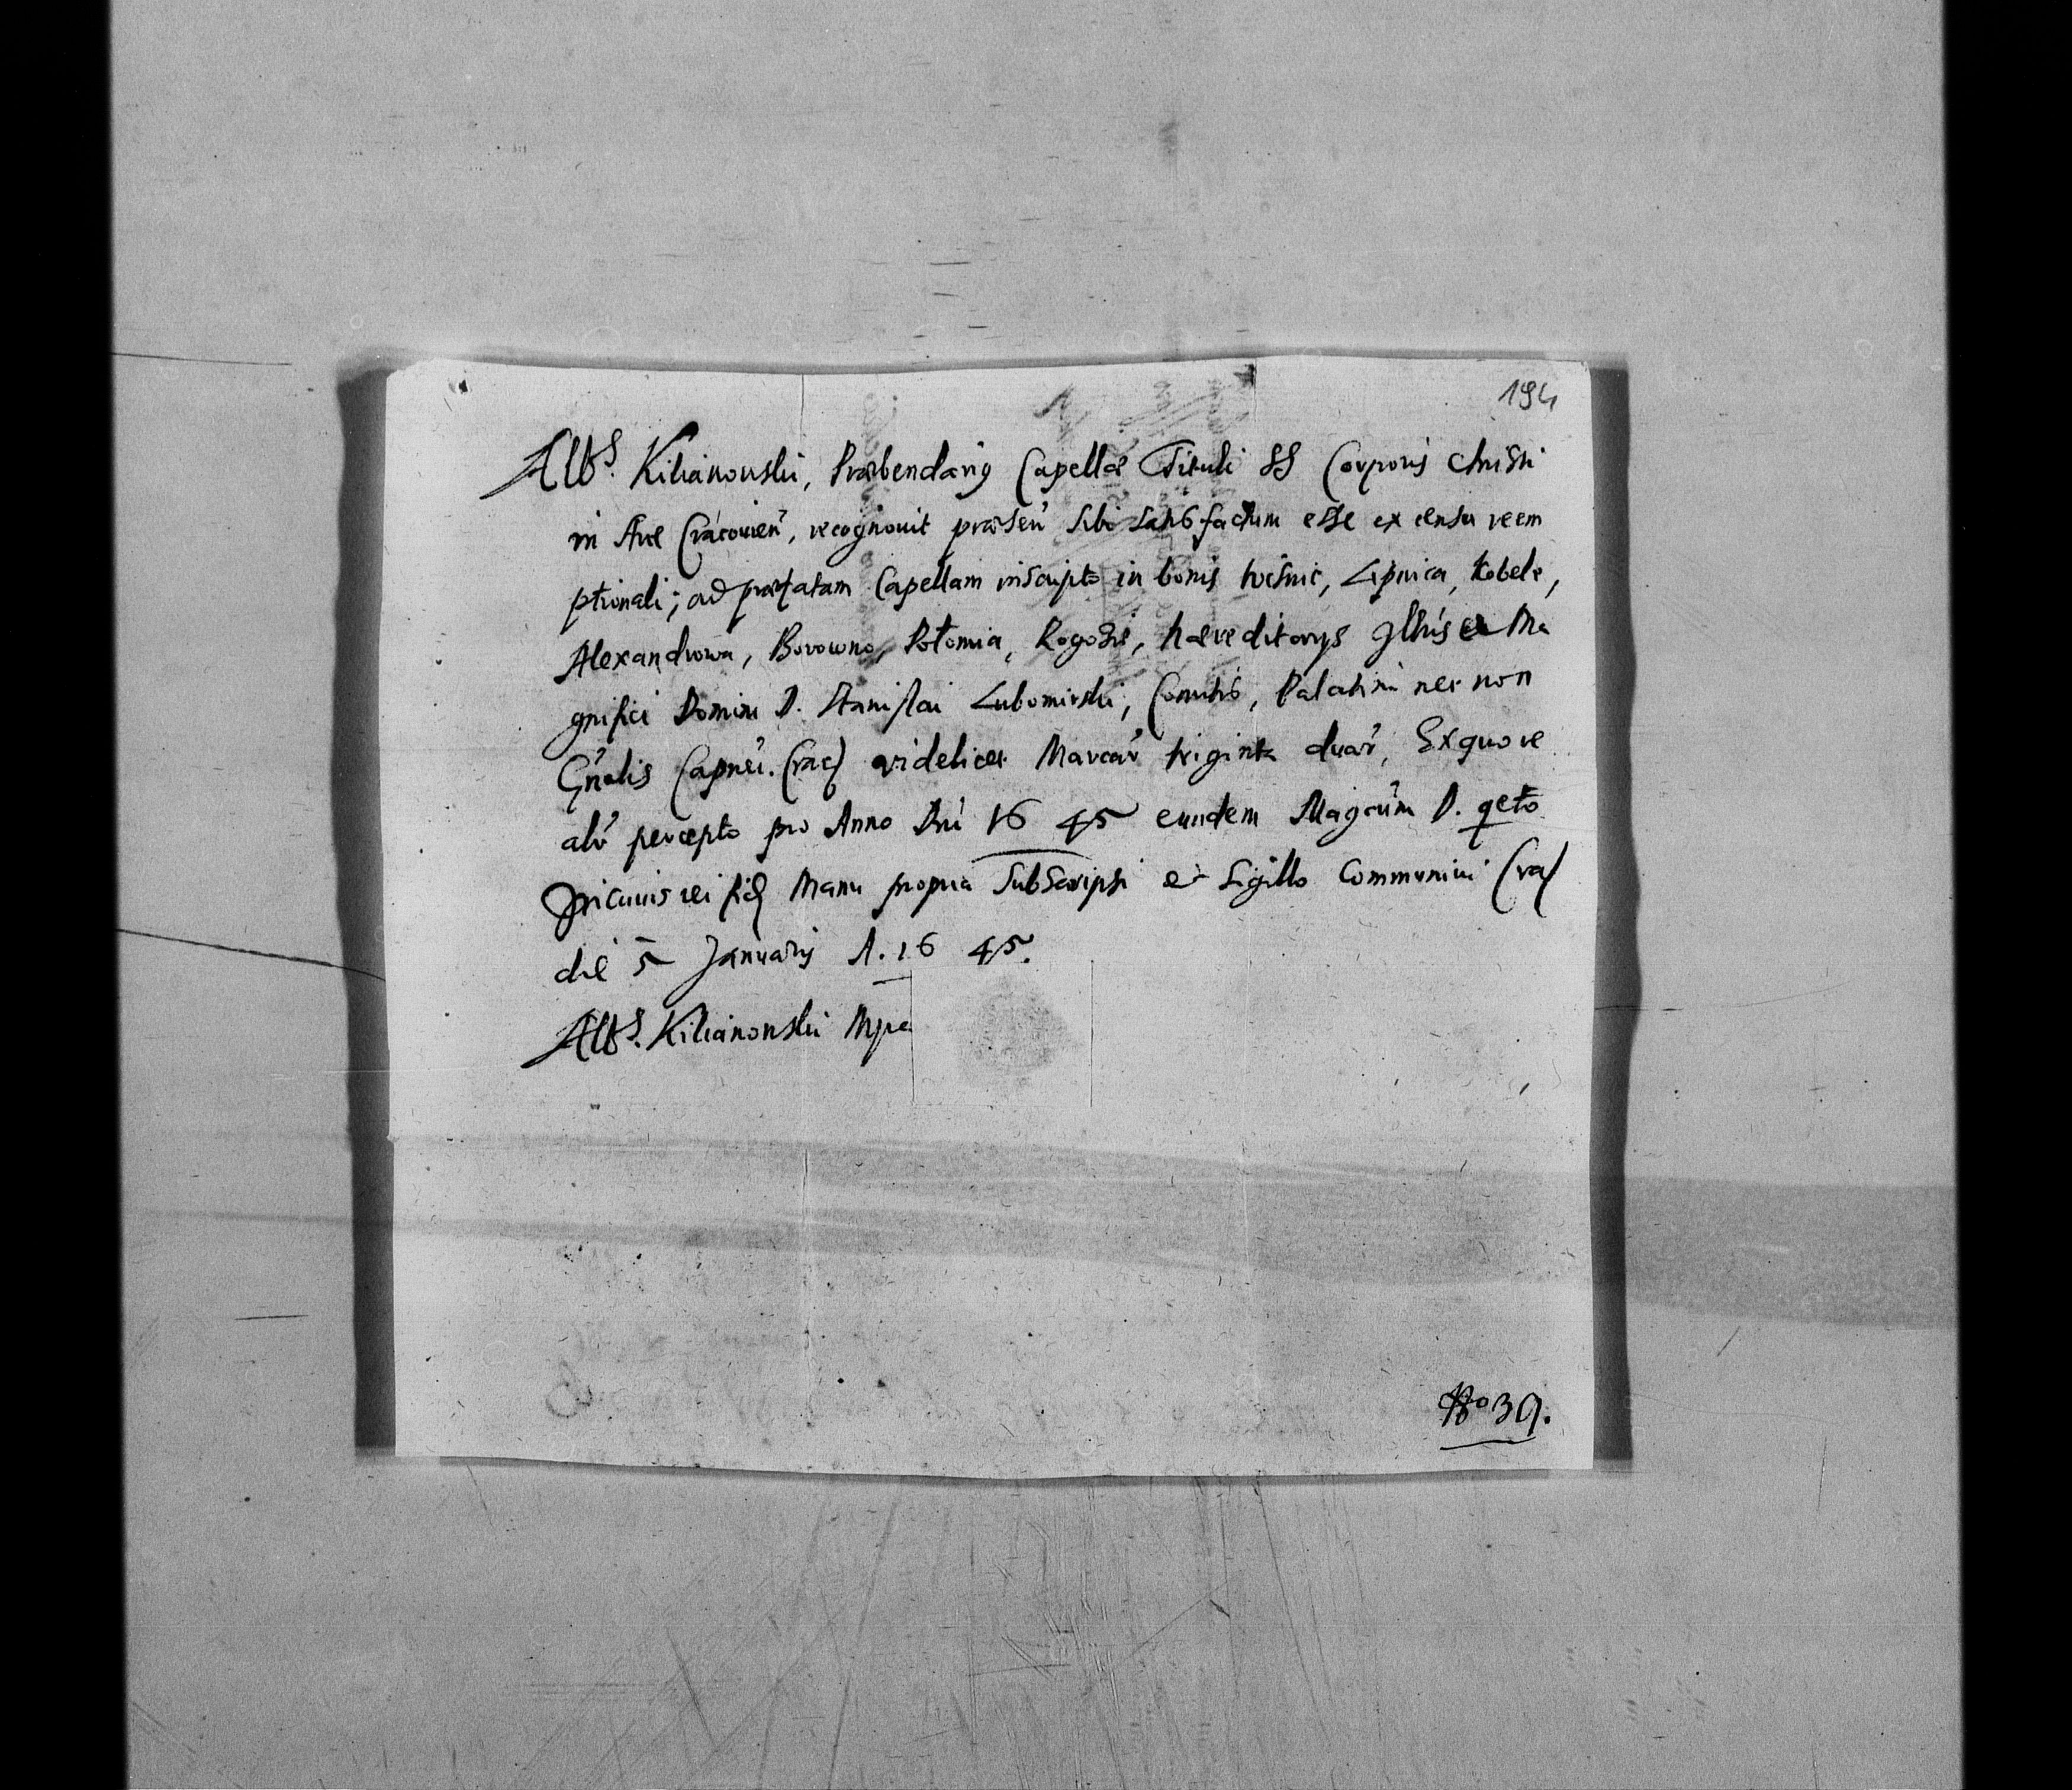 194
Albs. Kilianowski, Præbendarig Capellæ Tituli SS Corporis Christi
in Arce Cracovien̄, recognovit præsen̄ sibi satisfactum esse ex censu reem
ptionali; ad præfatam Capellam inscripto in bonis Wiśnic, Lipnica, Kobele,
Alexandrowa, Borowno, Połomia, Rogozie, hæreditarys Illris et Ma
gnifici Domini D. Stanislai Lubomirski, Comitis, Palatini nec non
Gn̄alis Capnei. Crac) videlicet Marcar̄ triginta duar̄, Ex quo re
alr̄ percepto pro Anno Dni 16 45 eundem Magcūm D. qeto
In cuius rei fid Manu propria Subscripsi et Sigillo Communivi Cra)
die 5 Januarij A. 16 45.
Albs. Kilianowski Mpa
No 39.